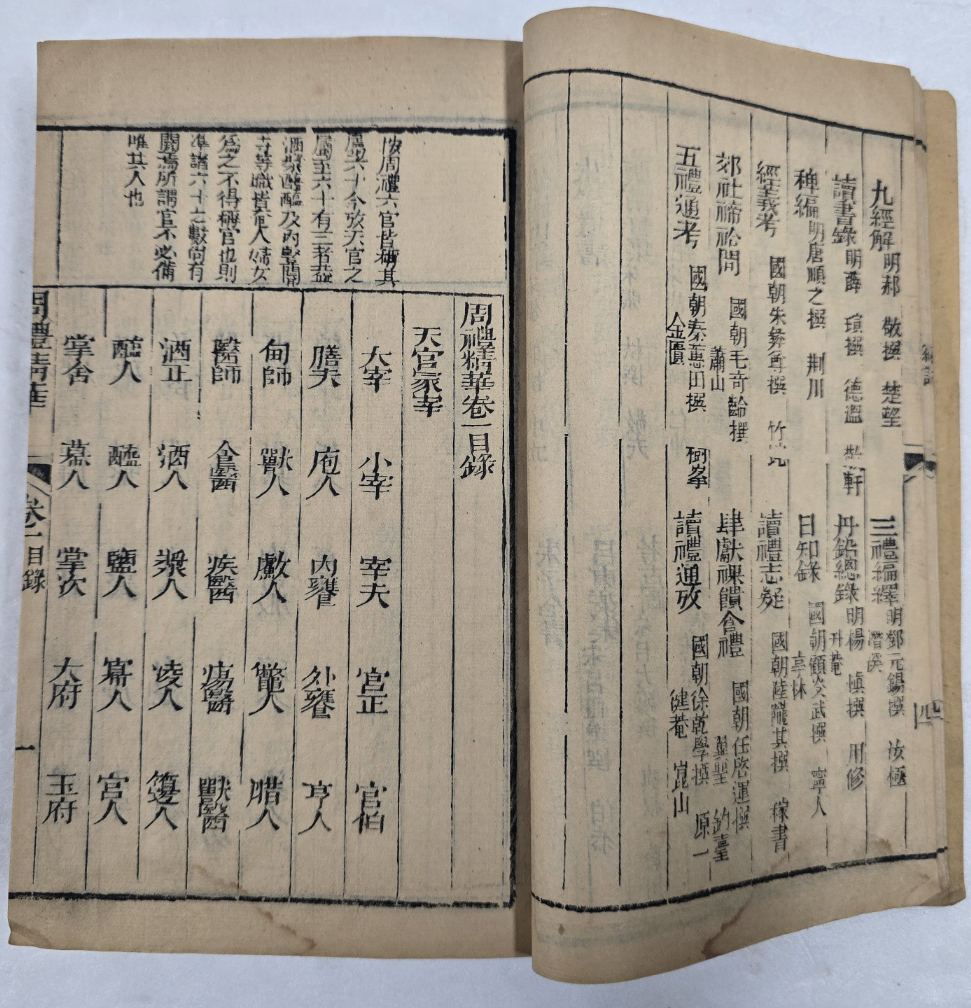 九經解 明郝 敬撰 楚望
三禮編繹 明鄧元錫撰 汝極 潛溪
讀書錄 明薛 瑄撰 德溫 敬軒
丹鉛總錄 明楊 慎撰 用修 升菴
稗編 明唐順之撰 荆川
日知錄 國朝顧炎武撰 寧人 亭林
經義考 國朝朱彝尊撰 竹垞
讀禮志疑 國朝陸隴其撰 稼書
郊社禘祫問 國朝毛奇齡撰 蕭山
肆獻祼饋食禮 國朝任啓運撰 翼聖 釣臺
五禮通考 國朝秦蕙田撰 樹峯 金匱
讀禮通攷 國朝徐乾學撰 原一 健菴 崑山
四
按周禮六官皆稱其
屬六十今攷天官之
屬至六十有三者蓋
酒漿醯醢及內豎閽
寺等職皆奄人婦女
爲之不得稱官也則
準諸六十之數尙有
闕焉所謂官不必備
唯其人也
周禮精華卷一目錄
天官冢宰
大宰 小宰 宰夫 宮正 宮伯
膳夫 庖人 內饔 外饔 亨人
甸師 獸人 䱷人 鼈人 腊人
醫師 食醫 疾醫 瘍醫 獸醫
酒正 酒人 漿人 凌人 籩人
醢人 醯人 鹽人 冪人 宮人
掌舍 幕人 掌次 大府 玉府
周禮精華 卷一目錄 一